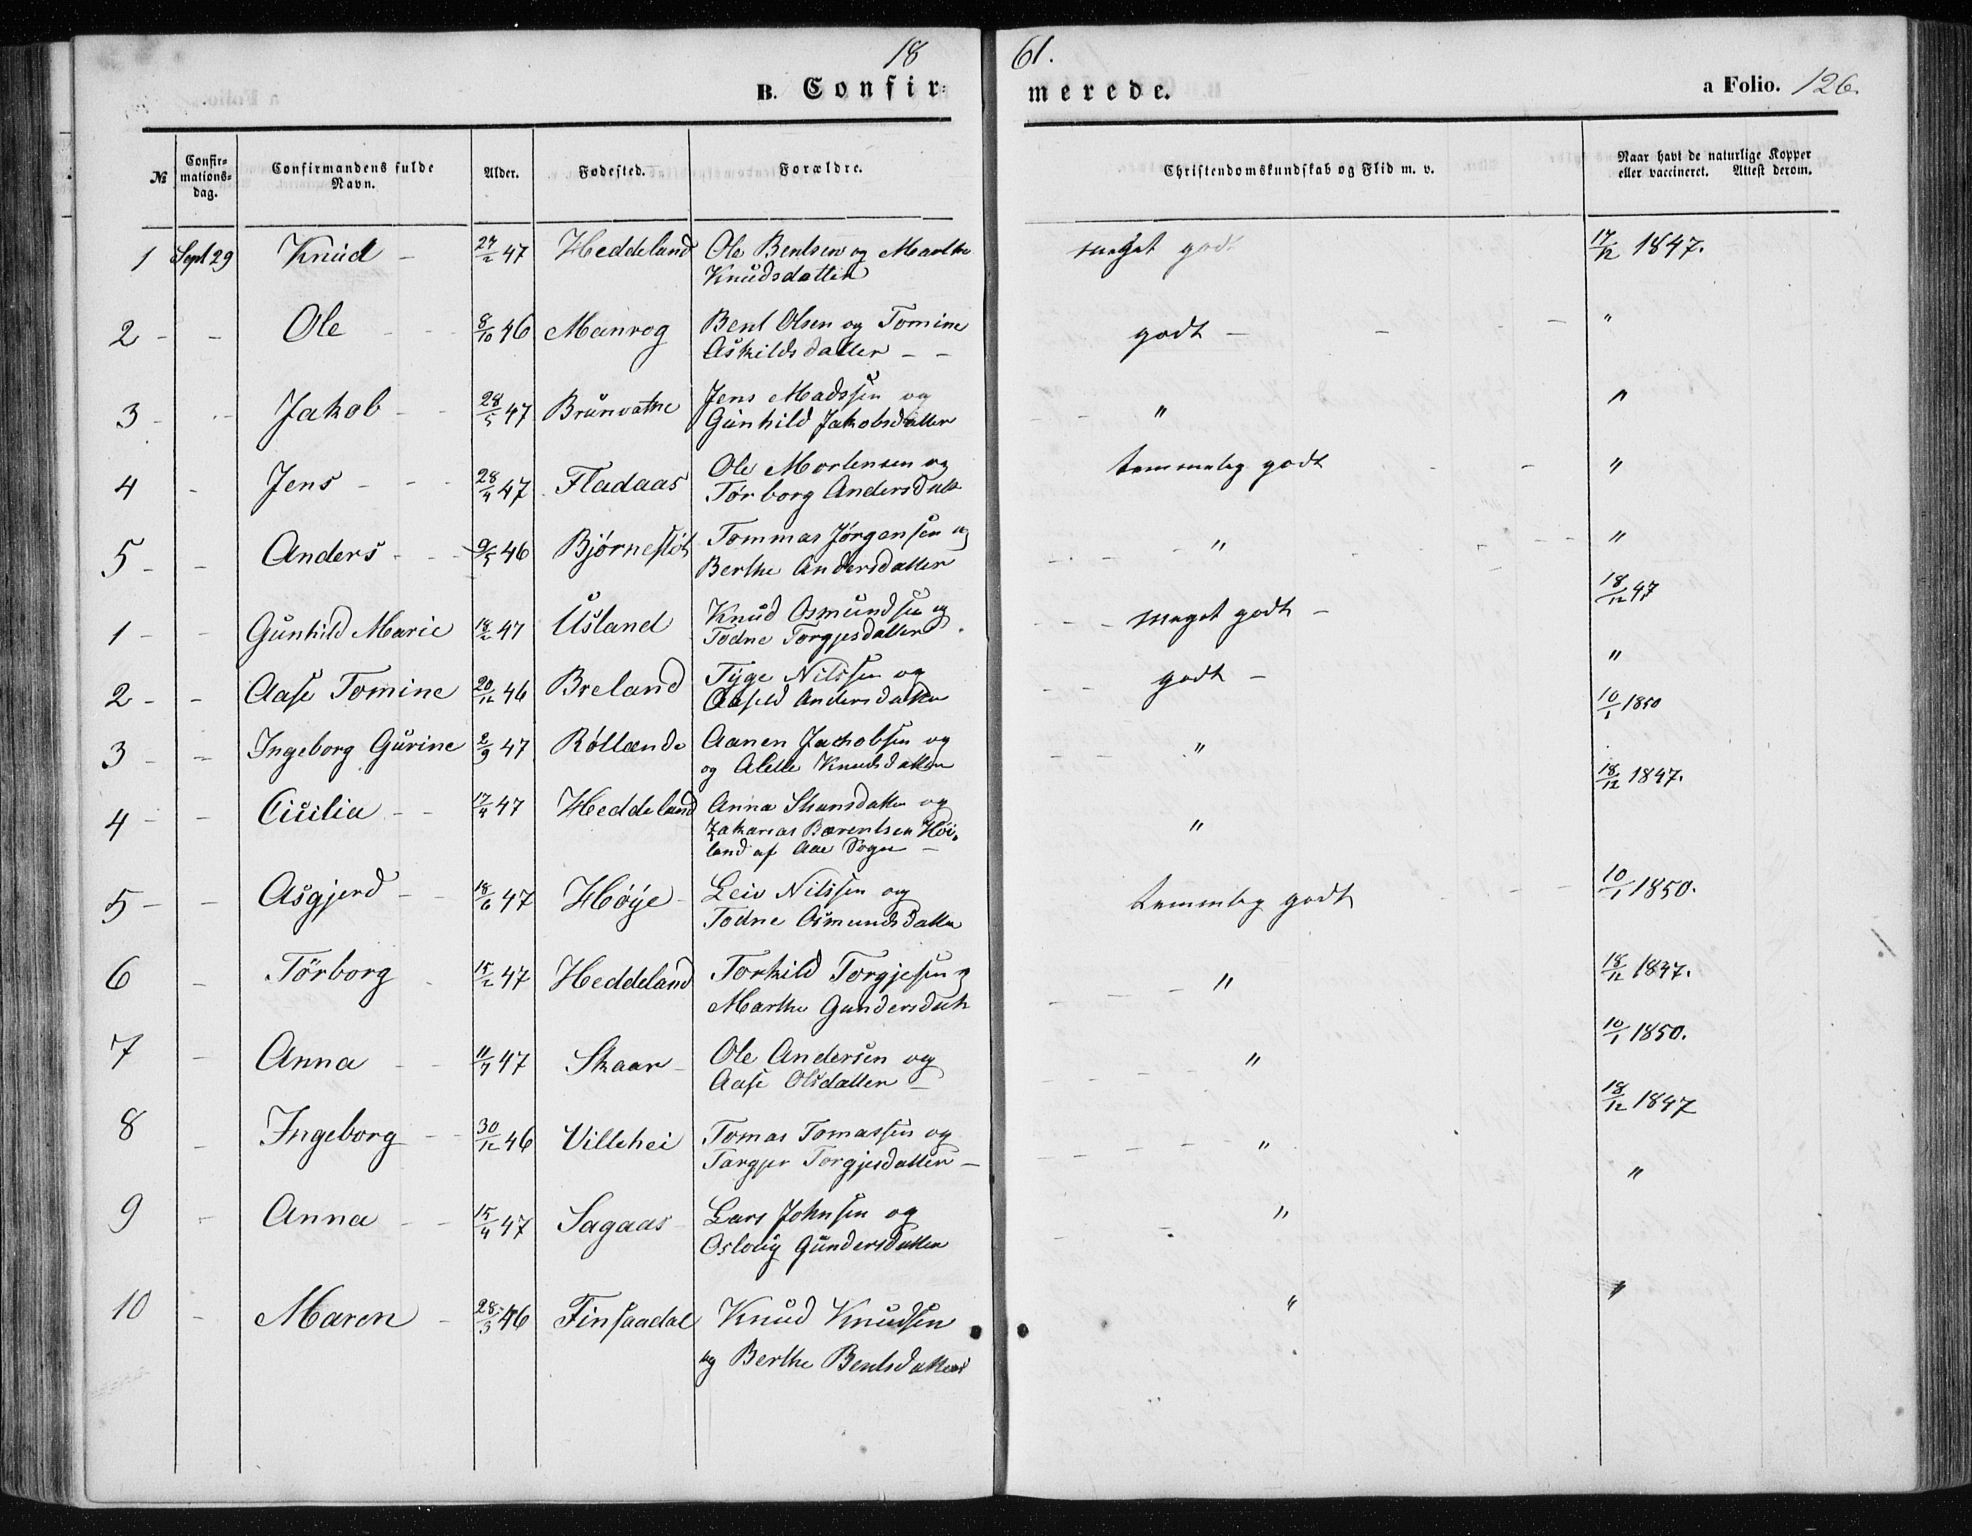 18 61.
B. Confir= merede. a Folio. 126.
№ Confir=mations=dag. Confirmandens fulde Navn. Alder. Fødested. Forældre. Christendomskundskab og Flid m. v. Naar havt de naturlige Kopper eller vaccineret. Attest derom.
1 Sept 29 Knud - 24/2 47 Heddeland Ole Bentsen og Marthe meget godt 17/12 1847.
Knudsdatter
2 - - Ole - - 8/10 46 Manrog Bent Olsen og Tomine godt - - - "
Askildsdatter - -
3 - - Jakob - - 28/5 47 Brunvatne Jens Madssen og " "
Gunhild Jakobsdatter
4 - Jens - - - 28/4 47 Fladaas Ole Mortensen og temmelig godt - - "
Torborg Andersdatt
5 - - Anders - - 9/5 46 Bjørnestøl Tommas Jørgensen og " "
Berthe Andersdatter
1 - - Gunhild Marie 18/2 47 Usland Knud Osmundsen og meget godt - 18/12 47
Todne Torgjesdatter
2 - - Aase Tomine 20/12 46 Breland Tyge Nilssen og godt - "
Aasild Andersdatter
3 - - Ingeborg Gurine 2/9 47 Røllænde Aanen Jakobsen og " 10/1 1850
og Alette Knudsdatter
4 - - Cicilia - - 17/4 47 Heddeland Anna Stansdatter og " 18/12 1847.
Zakarias Bærentsen Høi=
land af Aae Sogn -
5 - - Asgjerd - - 18/6 47 Høye - Leiv Nilssen og temmelig godt - - 10/1 1850.
Todne Osmundsdatter
6 - Torborg - 15/2 47 Heddeland Torkild Torgjesen og " 18/12 1847.
Marthe Gundersdatt
7 - Anna - - 11/4 47 Skaar - Ole Andersen og " 10/1 1850.
Aase Olsdatter -
8 - Ingeborg - - 30/12 46 Villehei Tomas Tomassen og " 18/12 1847
Targjer Torgjesdatter -
9 - Anna - - 15/4 47 Sagaas Lars Johnsen og " "
Oslaug Gundersdatter
10 - Maren - 28/3 46 Finsaadal Knud Knudsen " "
og Berthe Bentsdatter